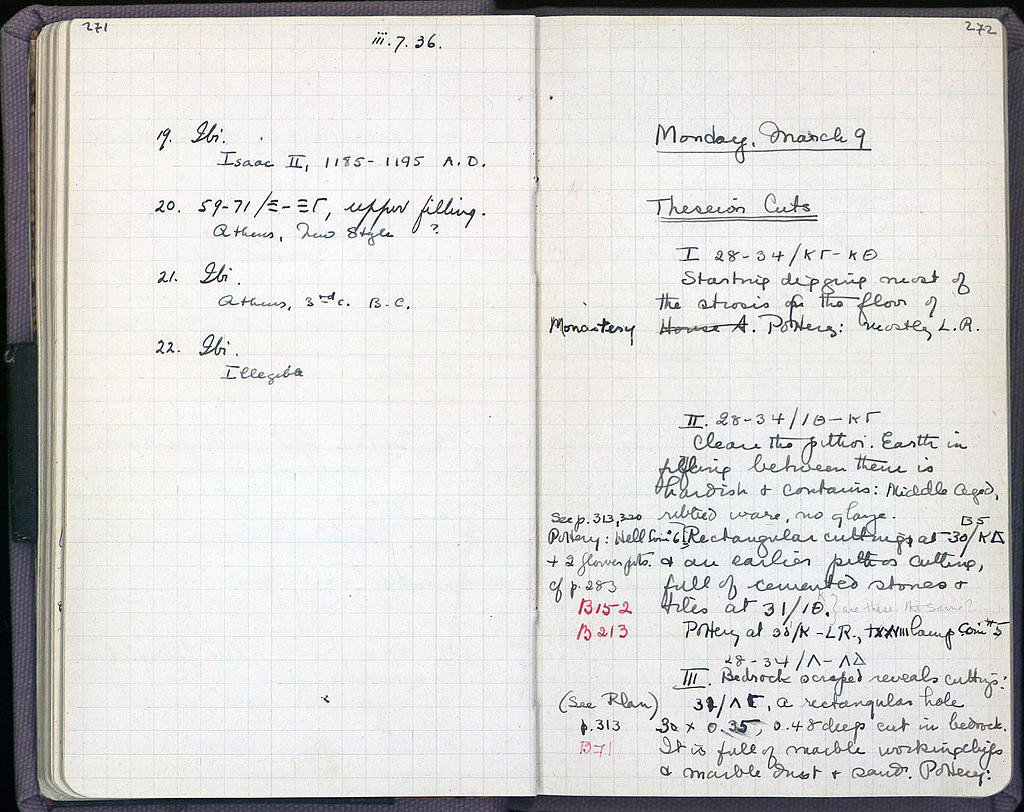 271
iii.7.36.
19. Ibi.
Isaac II, 1185-1195 A.D.
20. 59-71/Ξ-ΞΓ, upper filling.
Athens, New Style ?
21. Ibi.
Athens, 3rd c. B.C.
22. Ibi.
Illegible
272
Monday, March 9
Theseion Cuts
I 28-34/ΚΓ-ΚΘ
Starting digging most of
the strosis on the floor of
Monastery House A. Pottery: mostly L.R.
II. 28-34/ΙΘ-ΚΓ
Clean the pithoi. Earth in
filling between them is
hardish + contains: Middle Aged,
See p. 313, 320 ribbed ware, no glaze. B5
Pottery: Well Coin 6 Rectangular cuttings at 30/ΚΔ
+ 2 flowerpots. & an earlier pithos cutting,
cf p. 283 full of cemented stones +
B15-2 tiles at 31/ΙΘ. } are these the same?
B213 Pottery at 30/Κ-LR., lamp Coin #5
28-34/Λ-ΛΔ
III. Bedrock scraped reveals cuttings:
(See Plan) 31/ΛΓ, a rectangular hole
p.313 30 x 0.35, 0.48 deep cut in bedrock.
B71 It is full of marble working chips
& marble dust + sand. Pottery: